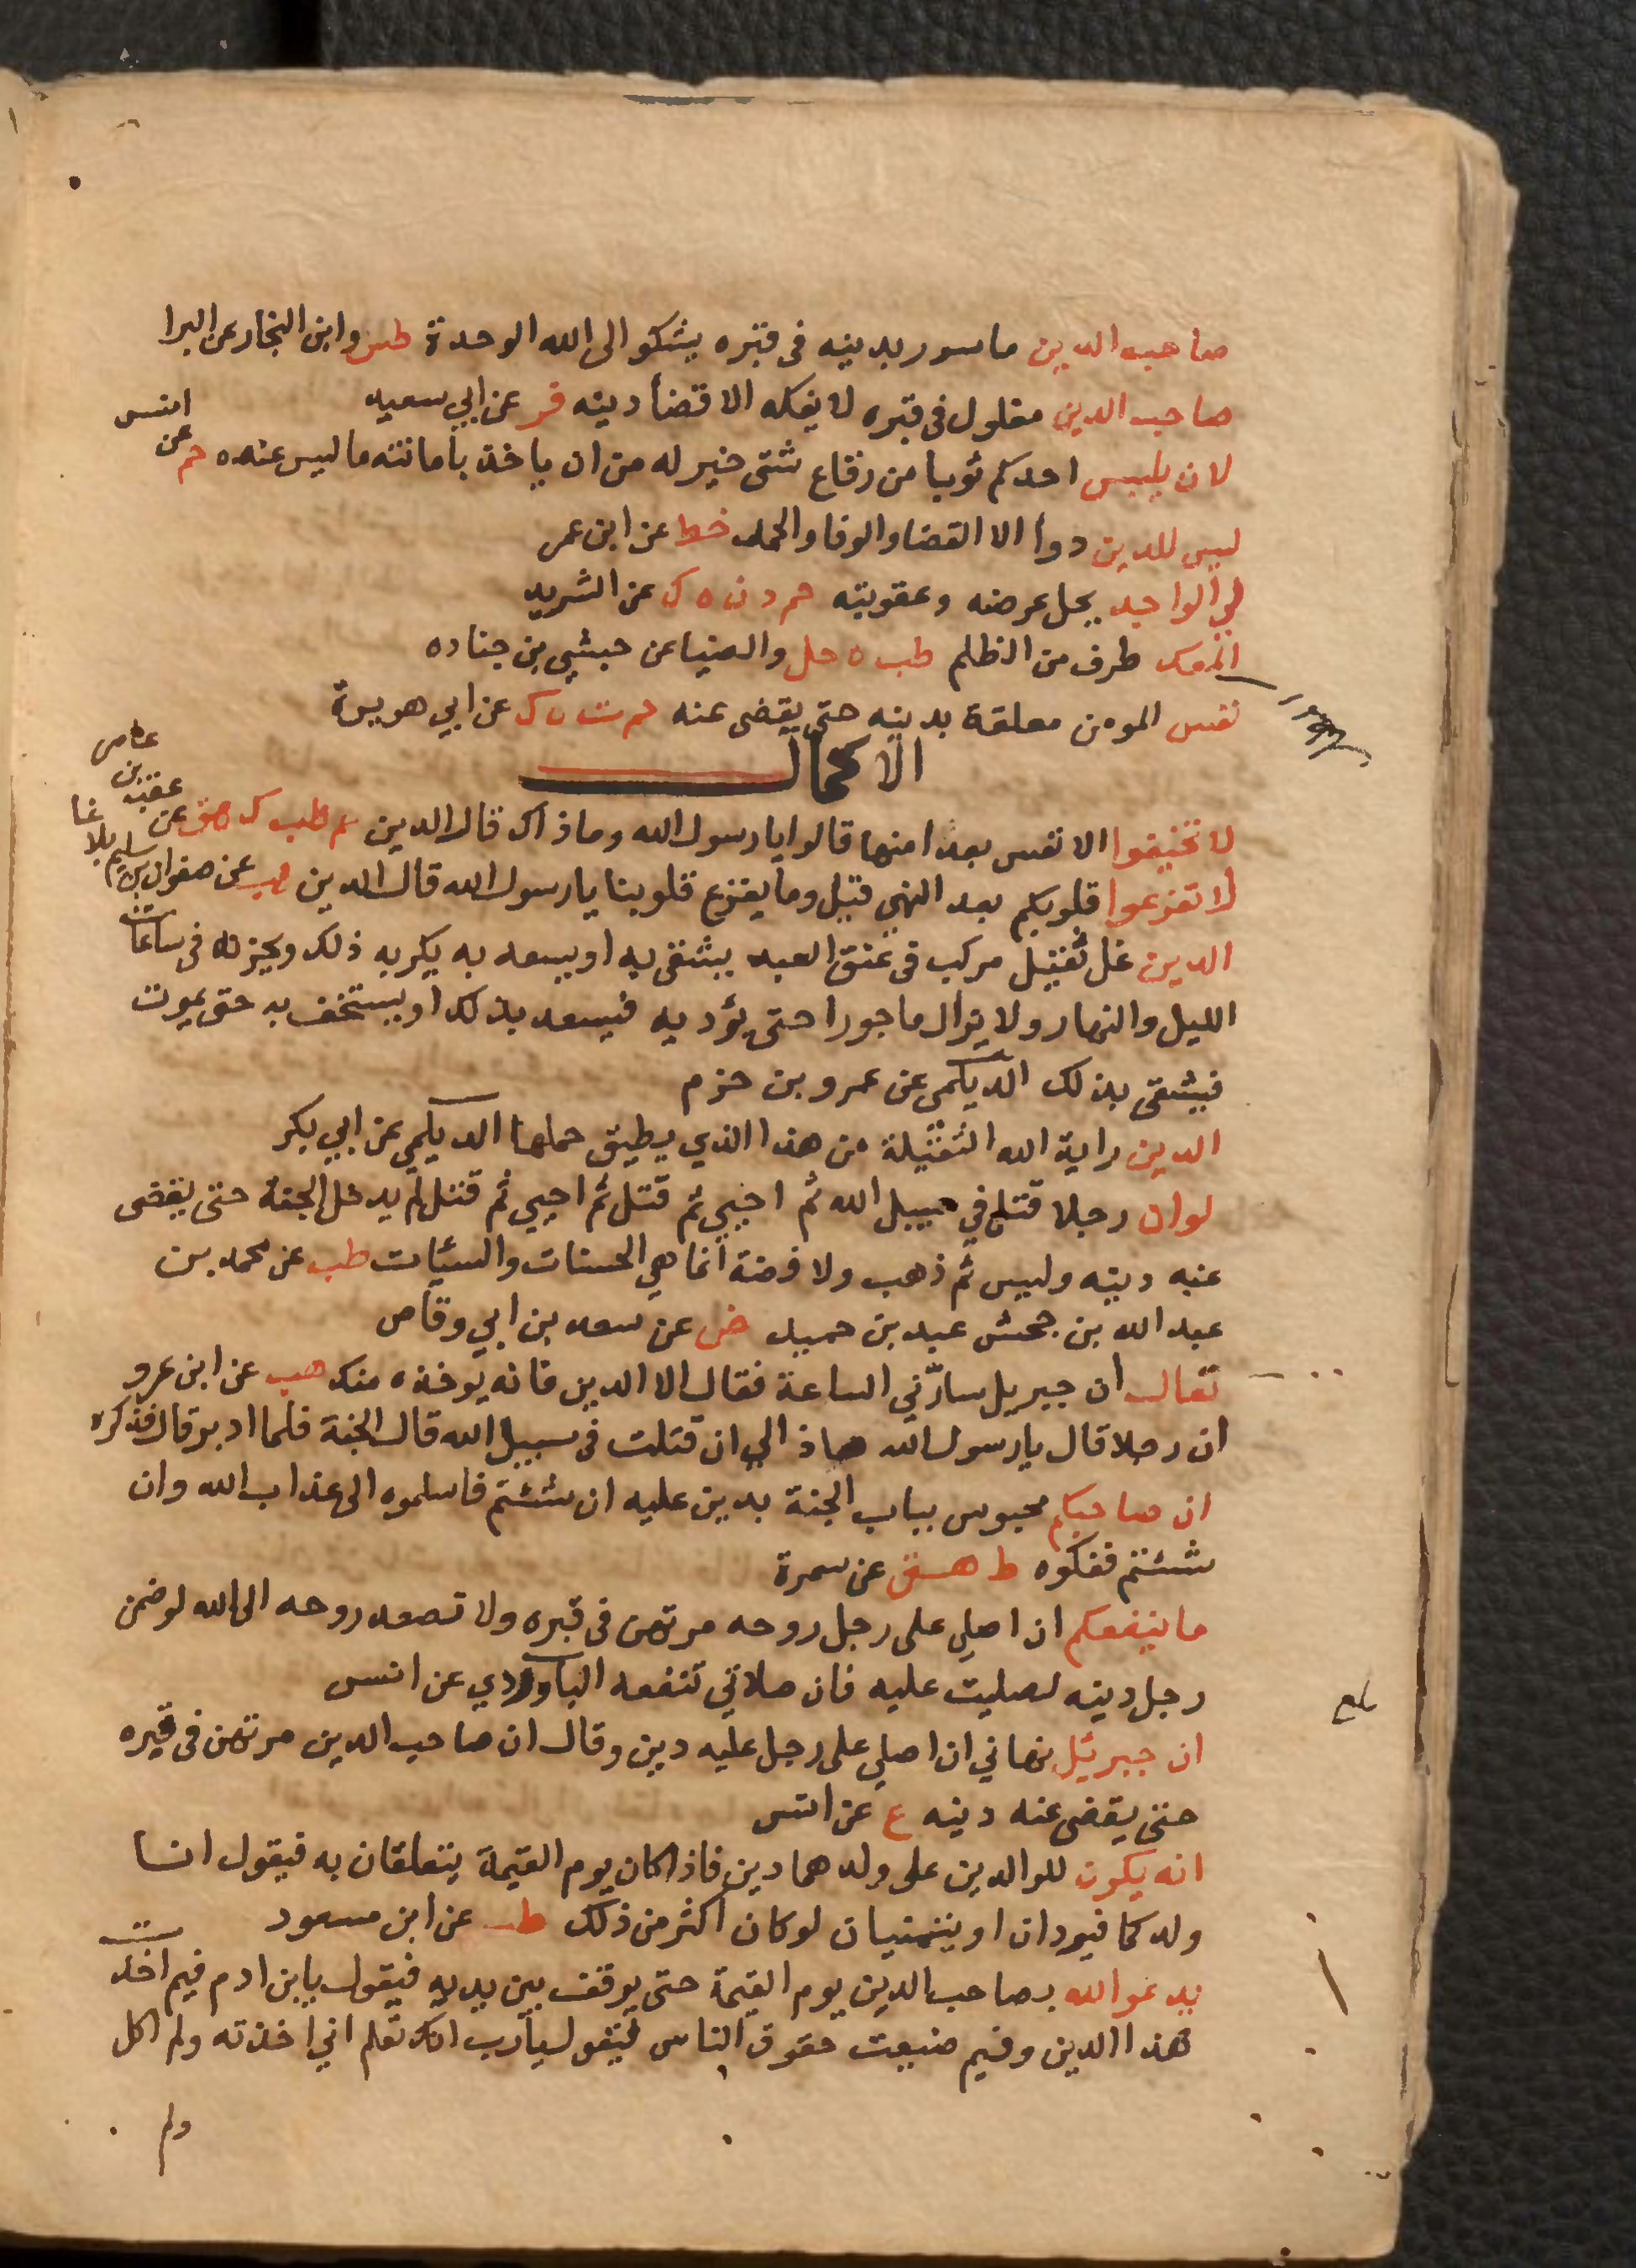 صاحب الدين ماسور بدينه في قبره يشكو الى الله الوحدة طس وابن النجار عن البرا
صاحب الدين مغلول في قبره لا يفكه الا قضأ دينه فر عن ابي سعيد
لان يلبس احدكم ثوبا من رقاع شتى خير له من ان ياخذ بامانته ما ليس عنده حم عن انس
ليس للدين دوأ الا القضا والوفا والحمد خط عن ابن عمر
لي الواجد يحل عرضه وعقوبته حم د ن ه ك عن الشريد
المعك طرف من الظلم طب ه حل والضيا عن حبشي بن جناده
نفس المومن معلقة بدينه حتى يقضى عنه حم ت ه ك عن ابي هريرة
الاكمال
لا تخيفوا الانفس بعد امنها قالوا يا رسول الله وما ذاك قال الدين حم طب ك هق عن عقبة بن عامر
لا تفزعوا قلوبكم بعد النهي قيل وما يفزع قلوبنا يا رسول الله قال الدين هب عن صفوان بن سليم بلاغا
الدين غل ثقيل مركب في عنق العبد يشقى به او يسعد به يكربه ذلك ويحزنه في ساعات
الليل والنهار ولا يزال ماجورا حتى يؤديه فيسعد بذلك او يستخف به حتى يموت
فيشقى بذلك الديلمي عن عمرو بن حزم
الدين راية الله الثقيلة من هذا الذي يطيق حملها الديلمي عن ابي بكر
لو ان رجلا قتل في سبيل الله ثم احيي ثم قتل ثم احيي ثم قتل لم يدخل الجنة حتى يقضى
عنه دينه وليس ثم ذهب ولا فضة انما هي الحسنات والسئات طب عن محمد بن
عبد الله بن جحش عبد بن حميد ض عن سعد بن ابي وقاص
تعال ان جبريل سارّني الساعة فقال الا الدين فانه يوخذ منك هب عن ابن عمرو
ان رجلا قال يا رسول الله ماذا لي ان قتلت في سبيل الله قال الجنة فلما ادبر قال فذكره
ان صاحبكم محبوس بباب الجنة بدين عليه ان شئتم فاسلموه الى عذاب الله وان
شئتم ففكوه ط هق عن سمرة
ما ينفعكم ان اصلي على رجل روحه مرتهن في قبره ولا تصعد روحه الى الله لو ضمن
رجل دينه لصليت عليه فان صلاتي تنفعه الباوردي عن انس
ان جبرئيل نهاني ان اصلي على رجل عليه دين وقال ان صاحب الدين مرتهن في قبره
حتى يقضى عنه دينه ع عن انس
انه يكون للوالدين على ولدهما دين فاذا كان يوم القيمة يتعلقان به فيقول انا
ولدكما فيودان او يتمنيان لو كان اكثر من ذلك طب عن ابن مسعود
يدعو الله بصاحب الدين يوم القيمة حتى يوقف بين يديه فيقول يابن ادم فيم اخذت
هذا الدين وفيم ضيعت حقوق الناس فيقول يا رب انك تعلم اني اخذته ولم اكل
ولم
بلغ